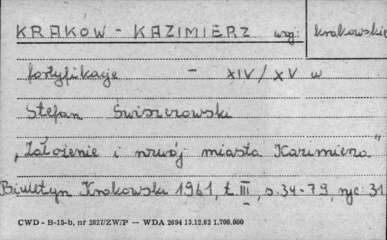 KRAKÓW - KAZIMIERZ woj: krakowskie
fortyfikacje - XIV/XV w
Stefan Świszczowski
„Założenie i rozwój miasta Kazimierza"
Biuletyn Krakowski 1961, t III, s. 34-79, ryc. 31
CWD - B-15-b, nr 2827/ZW/P — WDA 2694 13.12.62 1.700.000